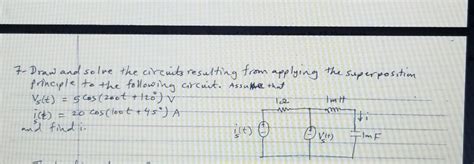 7- Draw and solve the circuits resulting from applying the superposition
principle to the following circuit. Assume that
Vs(t) = 5 cos(200t + 120°) V
is(t) = 20 cos(100t + 45°) A
and find i.
1Ω
1mH
is(t)
Vs(t)
i
1mF